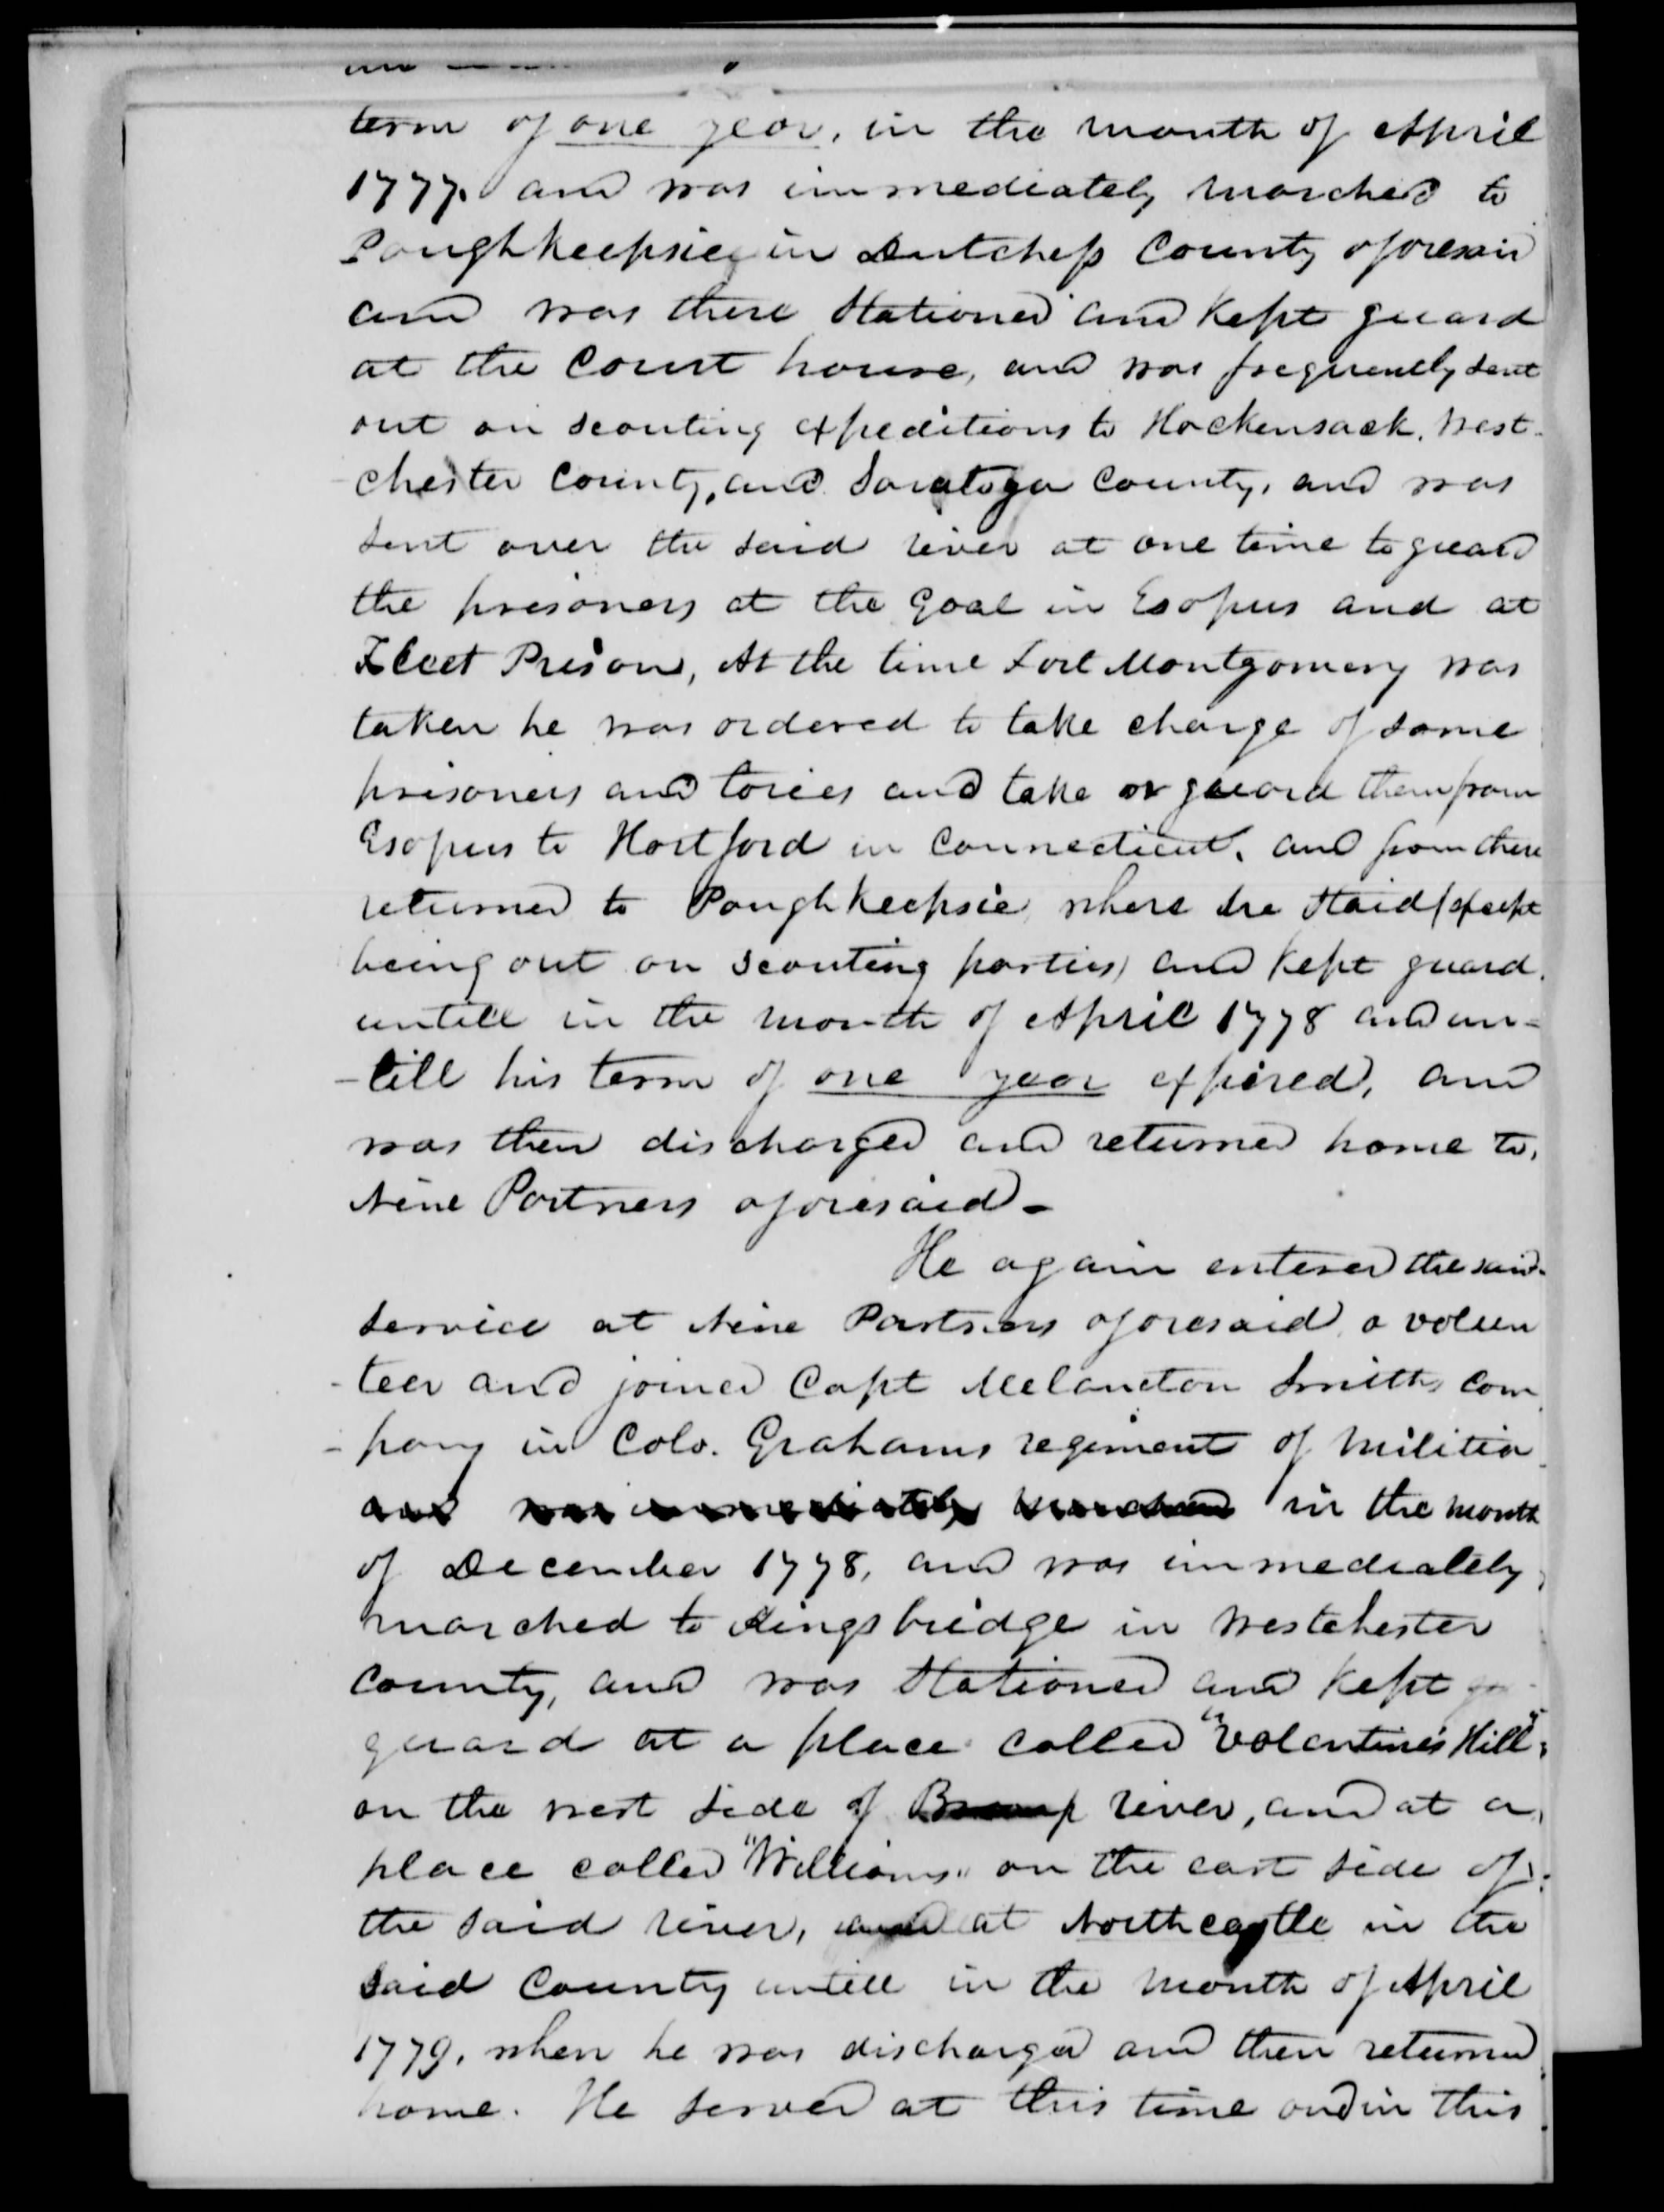 term of one year, in the month of April
1777. and was immediately marched to
Poughkeepsie, in Dutchess County aforesaid
and was there Stationed and kept guard
at the Court house, and was frequently sent
out on scouting expeditions to Hackensack, West-
-chester County, and Saratoga County, and was
sent over the said river at one time to guard
the prisoners at the Goal in Esopus and at
Fleet Prison, At the time Fort Montgomery was
taken he was ordered to take charge of some
prisoners and tories and take or guard them from
Esopus to Hartford in Connecticut, and from there
returned to Poughkeepsie where he Staid (except
being out on scouting parties) and kept guard
untill in the month of April 1778 and un-
-till his term of one year expired, and
was then discharged and returned home to,
Nine Partners aforesaid-
He again entered the said
service at Nine Partners aforesaid a volun
-teer and joined Capt Melancton Smiths com
-pany in Colo. Grahams regiment of Militia
and was immediately marched in the month
of December 1778, and was immediately
marched to Kingsbridge in Westchester
County, and was Stationed and kept
guard at a place called "Volentine's Hill"
on the west side of river, and at a
place called "Williams" on the east side of
the said river, and at Northcastle in the
said County untill in the month of April
1779, when he was discharged and then returned
home. He served at this time and in this